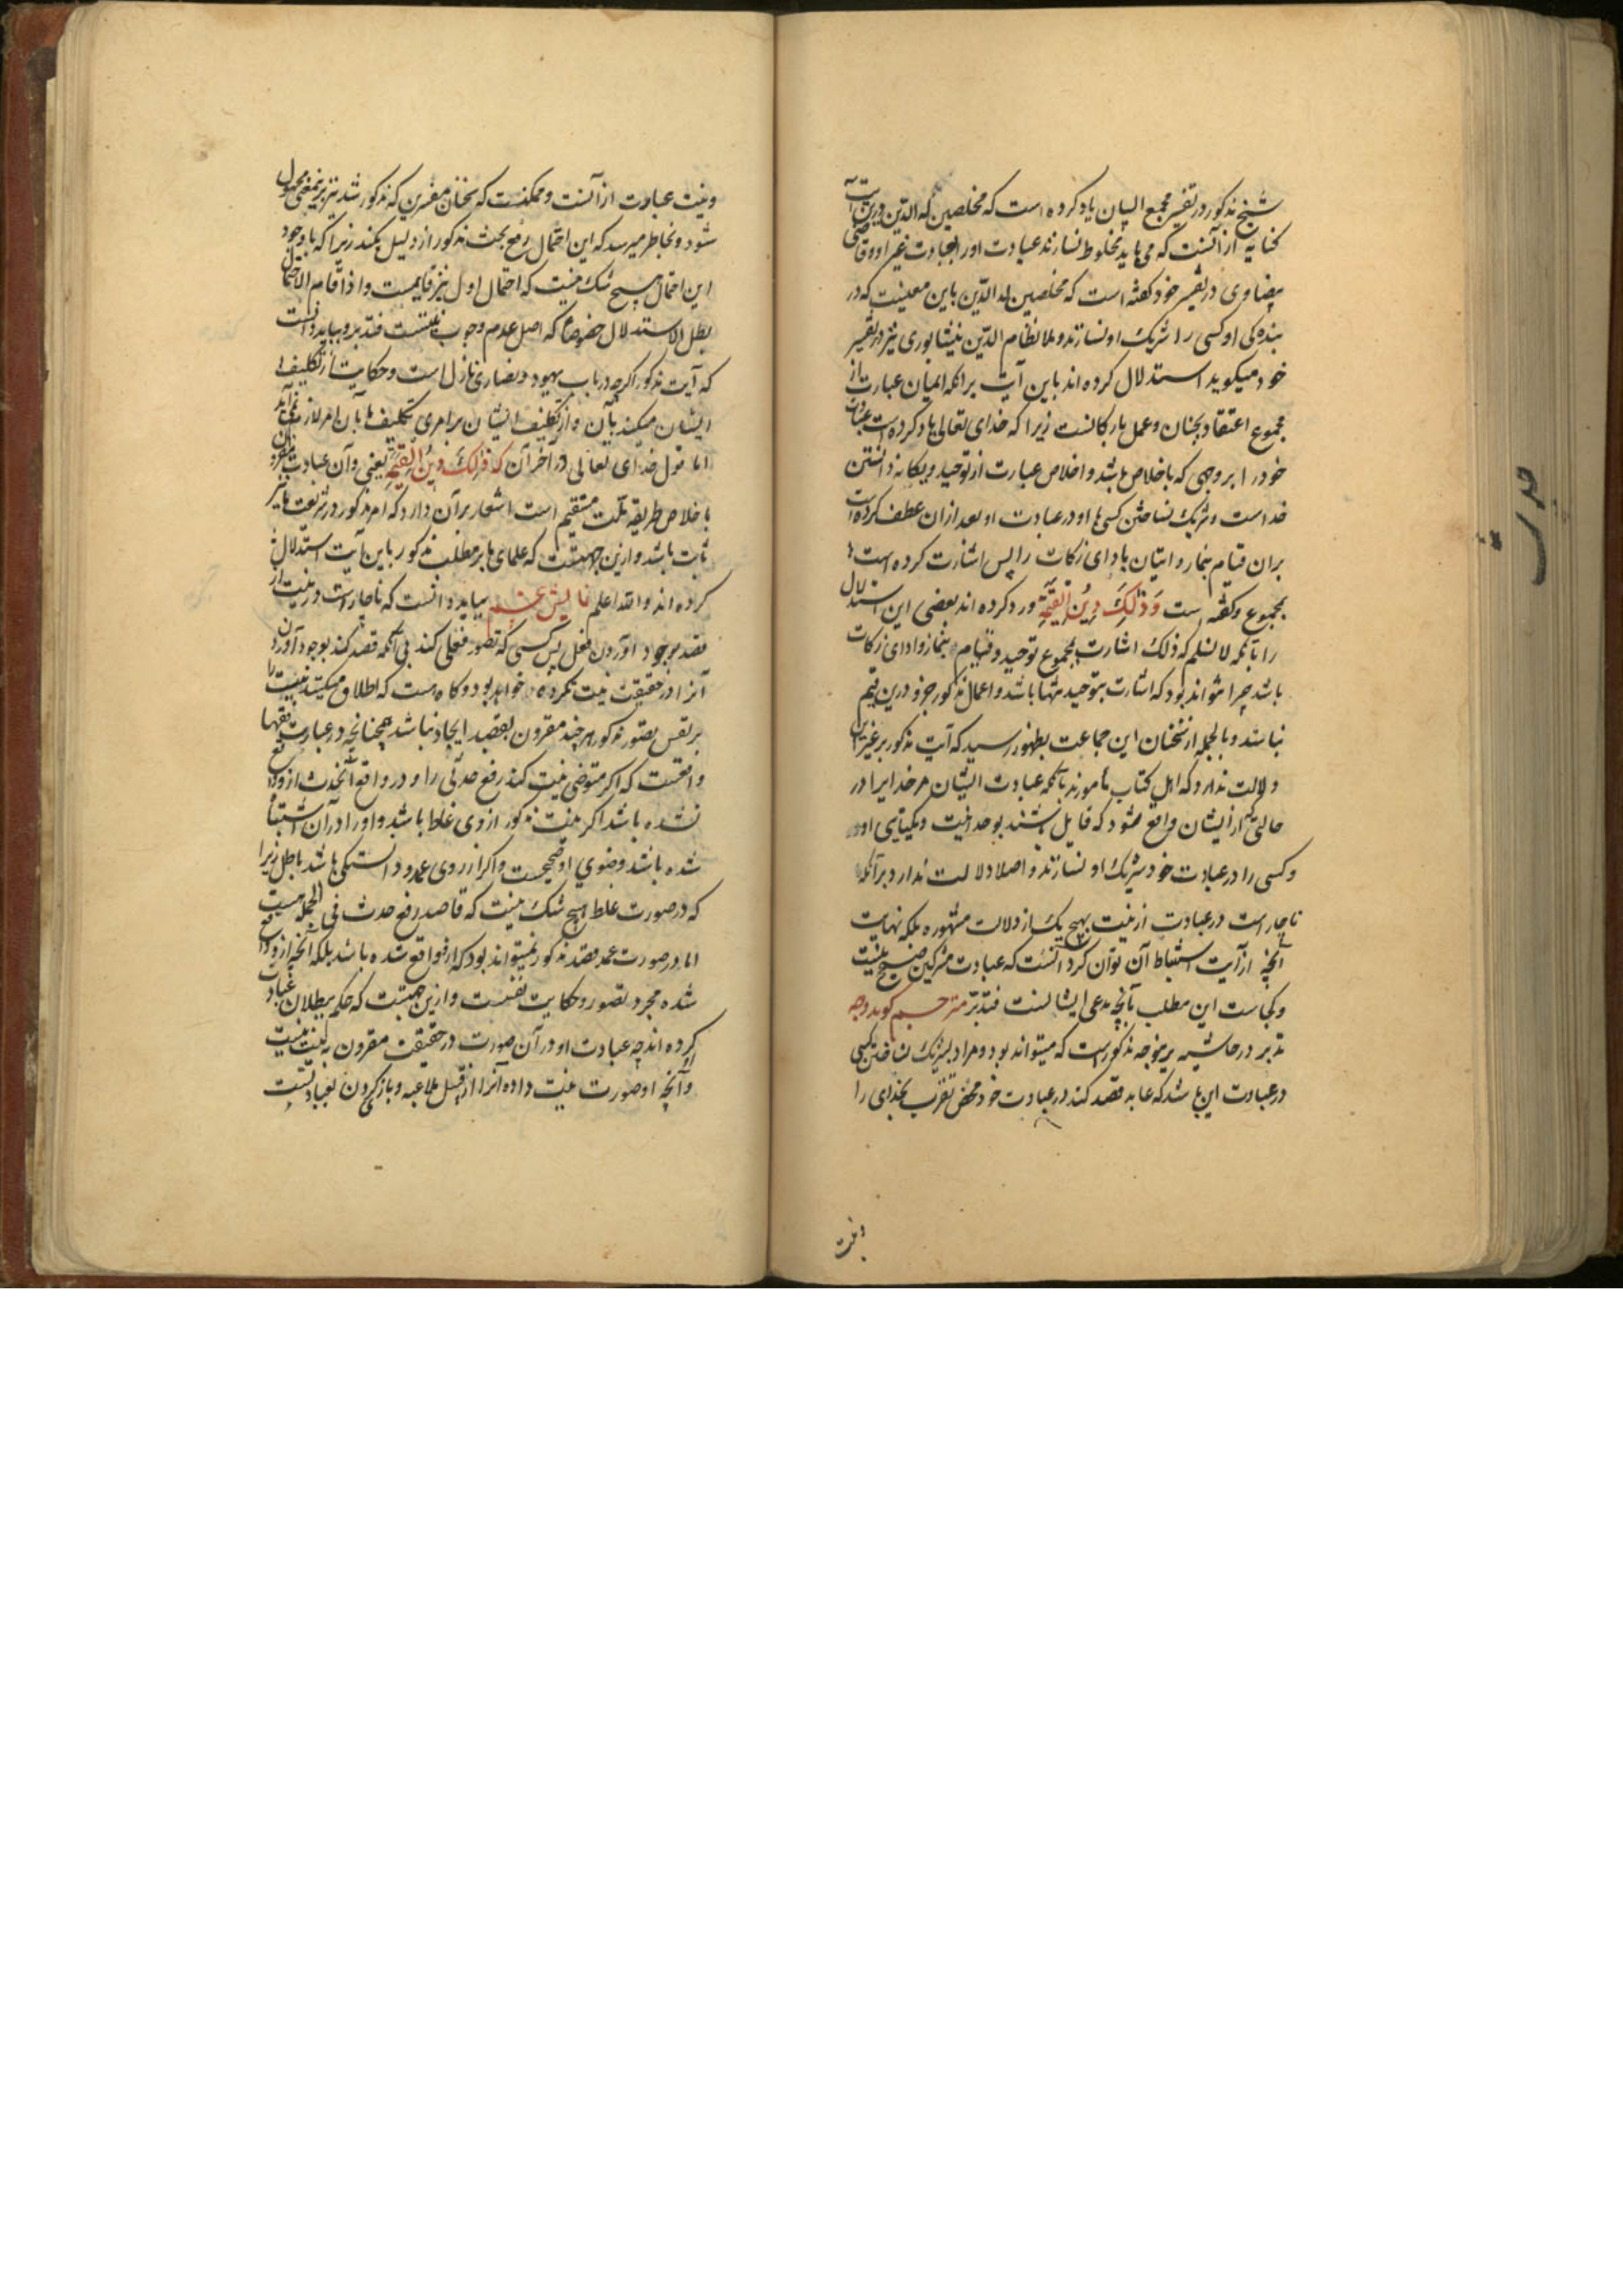 شیخ مذکور در تفسیر مجمع البیان یاد کرده است که مخلصین له الدین درین آیت
کنایه از آنست که می باید مخلوط نسازند عبادت او را بعبادت غیر او و قاضی
بیضاوی در تفسیر خود گفته است که مخلصین له الدین باین معنیست که در
بندگی او کسی را شریک او نسازند و ملا نظام الدین نیشابوری نیز در تفسیر
خود میگوید استدلال کرده اند باین آیت برانکه ایمان عبارت از
مجموع اعتقاد بجنان و عمل بارکانست زیرا که خدای تعالی یاد کرده است عبادت
خود را بر وجهی که باخلاص باشد و اخلاص عبارت از توحید و یکانه دانستن
خداست و شریک نساختن کسی با او در عبادت او بعد ازان عطف کرده است
بران قیام بنماز و اتیان بادای زکات را پس اشارت کرده است
بمجموع و گفته است وَذٰلِكَ دِینُ القَیِّمَةِ و رد کرده اند بعضی این استدلال
را بآنکه لا نسلم که ذلک اشارت بمجموع توحید و قیام بنماز و ادای زکات
باشد چرا نتواند بود که اشارت بتوحید تنها باشد و اعمال مذکور جزو دین قیم
نباشد و بالجمله از سخنان این جماعت بظهور رسید که آیت مذکور بر غیر این
دلالت ندارد که اهل کتاب مامورند بآنکه عبادت ایشان مر خدایرا در
حالتی از ایشان واقع شود که قایل باشند بوحدانیت و یکتایی او
و کسی را در عبادت خود شریک او نسازند و اصلا دلالت ندارد برآنکه
ناچار است در عبادت از نیت بهیچ یک از دلالت مشهوره بلکه نهایت
آنچه از آیت استنباط آن توان کرد آنست که عبادت مشرکین صحیح نیست
و کجاست این مطلب بآنچه مدعی ایشانست فتدبر مترجم گوید وجه
تدبر در حاشیه برینوجه مذکور است که میتواند بود و مراد بشریک نساختن کسی
در عبادت این باشد که عابد قصد کند در عبادت خود محض تقرب بخدای را
ونیت
ونیت عبادت از آنست و ممکنست که سخنان مفسرین که مذکور شد نیز برینمعنی محمول
شود و بخاطر میرسد که این احتمال رفع بحث مذکور از دلیل نکند زیرا که با وجود
این احتمال هیچ شک نیست که احتمال اول نیز قایمست و اذا قام الاحتمال
بطل الاستدلال خصوصا که اصل عدم وجوب نیتست فتدبر و بباید دانست
که آیت مذکور اگرچه در باب یهود و نصاری نازل است و حکایت از تکلیف
ایشان میکند بآن و از تکلیف ایشان برامری تکلیف ما بآن امر لازم نمی آید
اما قول خدای تعالی در آخر آن که ذٰلِكَ دِینُ القَیِّمَةِ یعنی و آن عبادت مقرون
باخلاص طریقه ملت مستقیم است اشعار برآن دارد که امر مذکور در شریعت ما نیز
ثابت باشد و ازین جهتست که علمای ما بر مطلب مذکور باین آیت استدلال
کرده اند والله اعلم نمایش ششم بباید دانست که ناچار است در نیت از
قصد بوجود آوردن فعل پس کسی که تصور فعلی کند بی آنکه قصد کند بوجود آوردن
آنرا در حقیقت نیت نکرده خواهد بود و گاه هست که اطلاق میکنند نیت را
بر نفس تصور مذکور هر چند مقرون بقصد ایجاد نباشد چنانچه در عبارت فقها
واقعست که اگر متوضی نیت کند رفع حدثی را و در واقع آن حدث ازو واقع
نشده باشد اگر نیت مذکور از وی غلط باشد و او را درآن اشتباه
شده باشد وضوی او صحیحست و اگر از روی عمد و دانستگی باشد باطل زیرا
که در صورت غلط هیچ شک نیست که قاصد رفع حدث فی الجمله هست
اما در صورت عمد قصد مذکور نمیتواند بود که ازو واقع شده باشد بلکه آنچه ازو واقع
شده مجرد تصور و حکایت نفسست و ازین جهتست که حکم ببطلان عبادت
کرده اند چه عبادت او در آن صورت در حقیقت مقرون به نیت نیست
و آنچه او صورت نیت داده آنرا از قبیل ملاعبه و بازی کردن بعبادتست